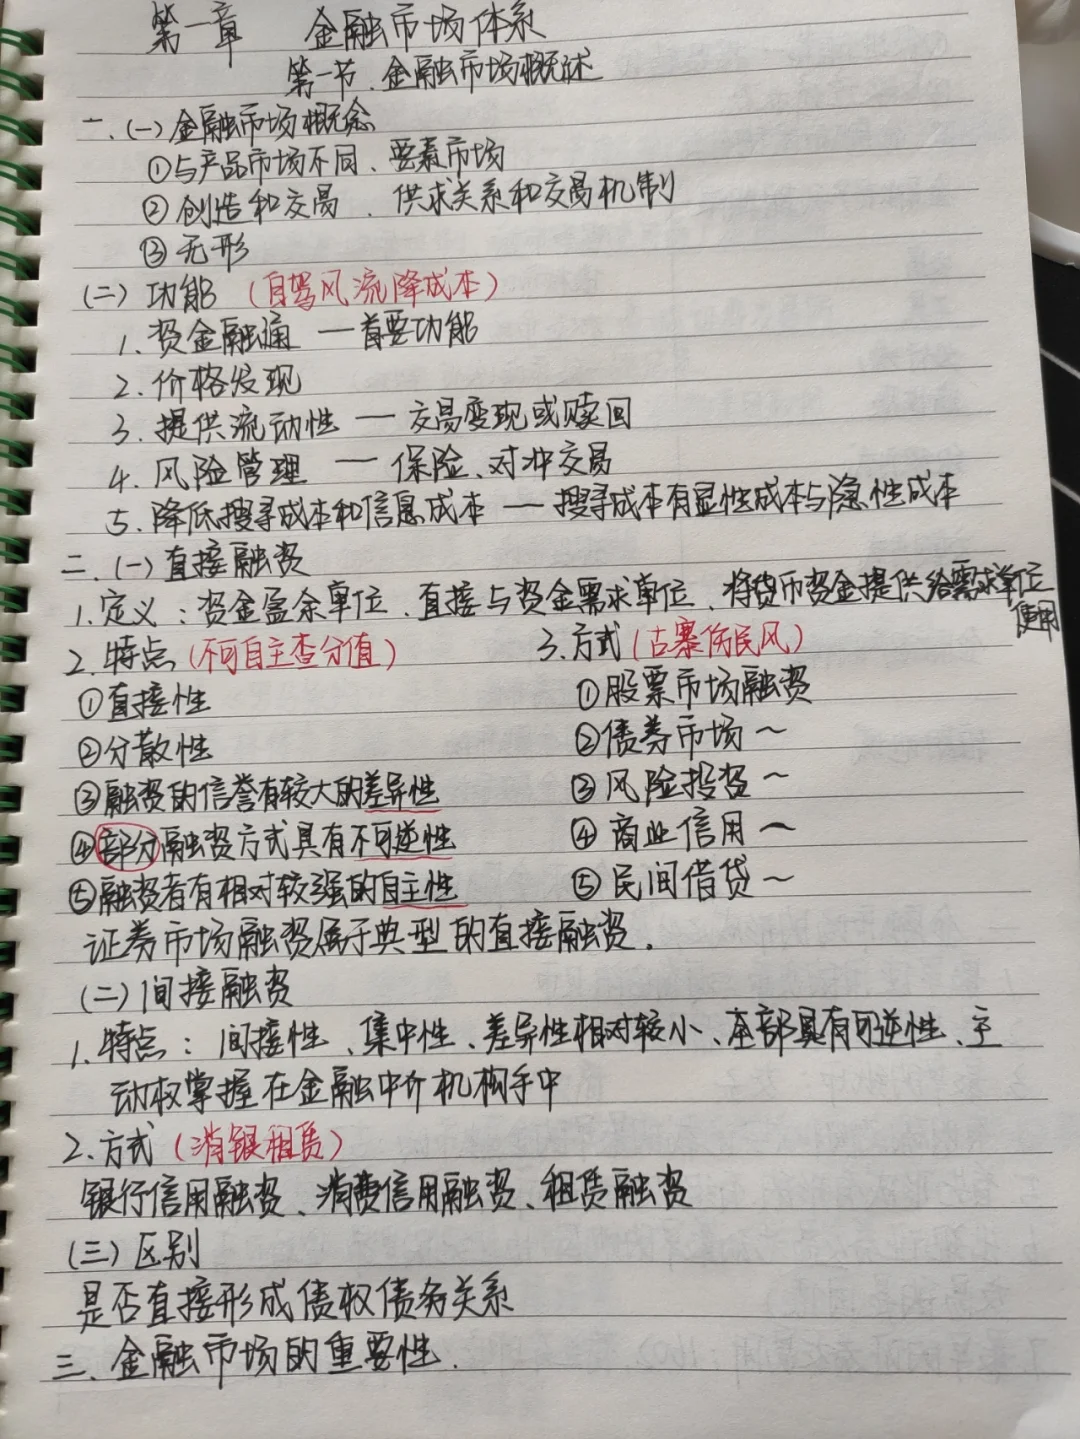 第一章 金融市场体系
第一节.金融市场概述
一、(一)金融市场概念
①与产品市场不同、要素市场
②创造和交易、供求关系和交易机制
③无形
(二)功能 (自驾风流降成本)
1.资金融通 — 首要功能
2.价格发现
3.提供流动性 — 交易变现或赎回
4.风险管理 — 保险、对冲交易
5.降低搜寻成本和信息成本 — 搜寻成本有显性成本与隐性成本
二、(一)直接融资
1.定义:资金盈余单位、直接与资金需求单位、将货币资金提供给需求单位
使用
2.特点(不可自主查分值) 3.方式(古寨伤民风)
①直接性 ①股票市场融资
②分散性 ②债券市场~
③融资的信誉有较大的差异性 ③风险投资~
④部分融资方式具有不可逆性 ④商业信用~
⑤融资者有相对较强的自主性 ⑤民间借贷~
证券市场融资属于典型的直接融资.
(二)间接融资
1.特点:间接性、集中性、差异性相对较小、全部具有可逆性、主
动权掌握在金融中介机构手中
2.方式(消银租赁)
银行信用融资、消费信用融资、租赁融资
(三)区别
是否直接形成债权债务关系
三、金融市场的重要性.